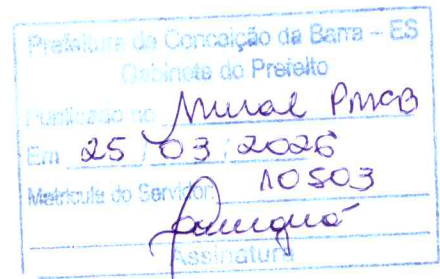 Prefeitura de Conceição da Barra – ES
Gabinete do Prefeito
Publicado no Mural PMCB
Em 25 / 03 / 2026
Matrícula do Servidor: 10503
Assinatura